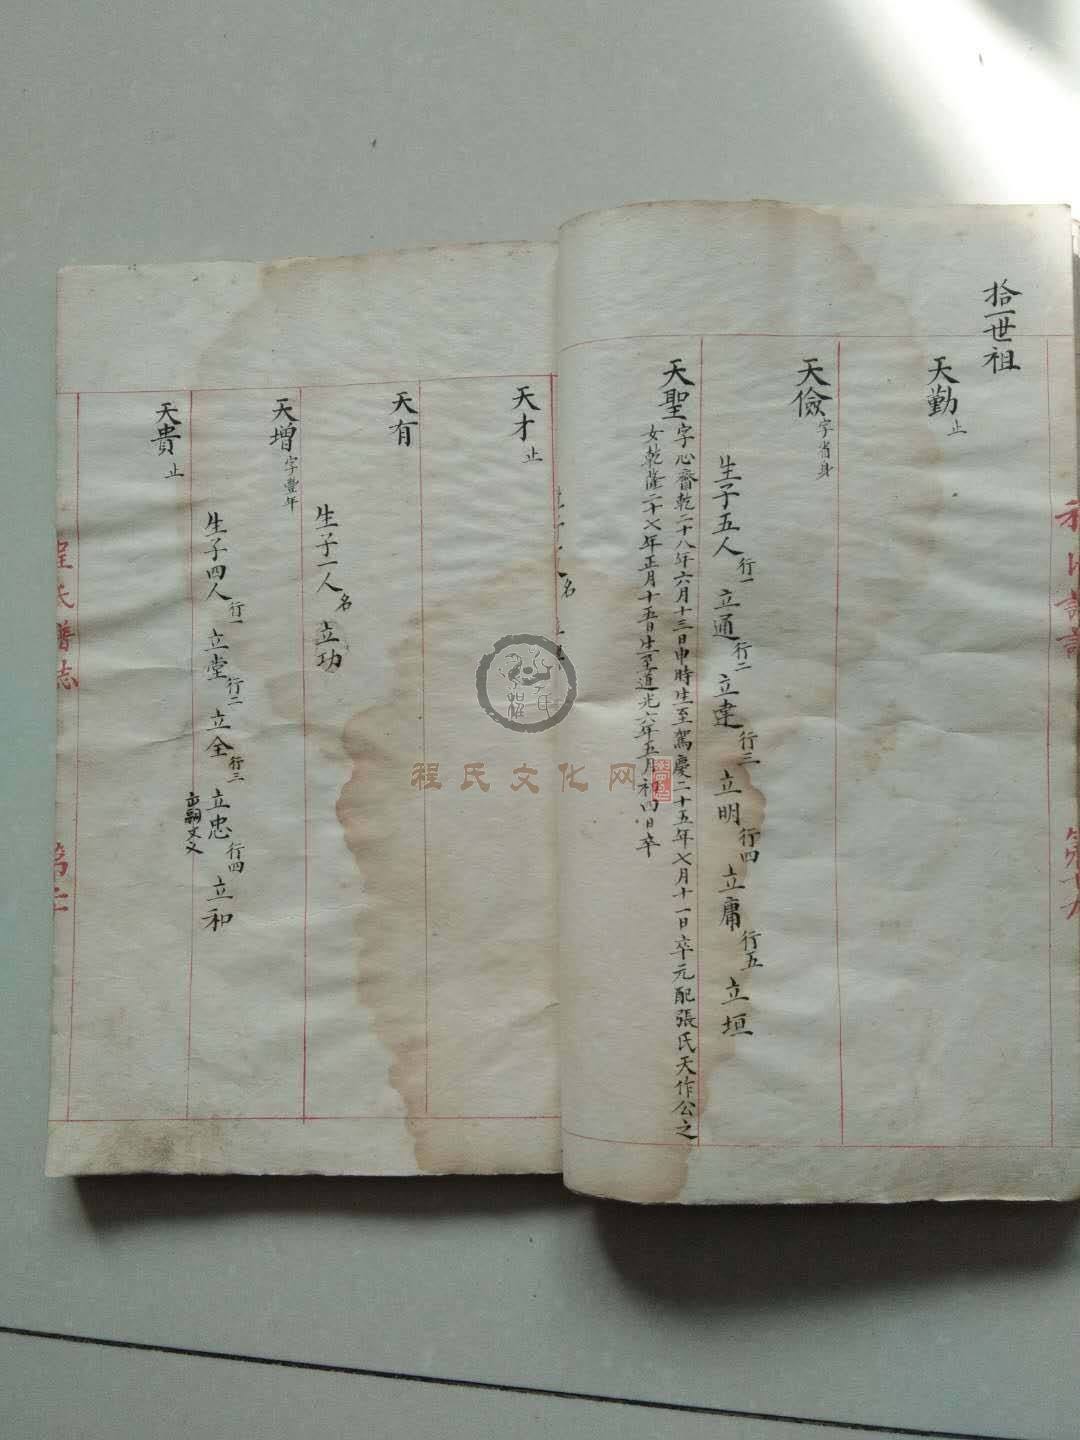 拾一世祖
天勤 止
天儉 字省身
生子五人 行一 立通 行二 立建 行三 立明 行四 立庸 行五 立垣
天聖 字心齋乾二十八年六月十三日申時生至駕慶二十五年七月十一日卒元配張氏天作公之
女乾隆二十七年正月十五日生至道光六年五月初四日卒
天才 止
天有
生子一人 名 立功
天增 字豐年
生子四人 行一 立堂 行二 立全 行三 立忠 行四 立和
出嗣文
天貴 止
程氏譜志
程氏文化网